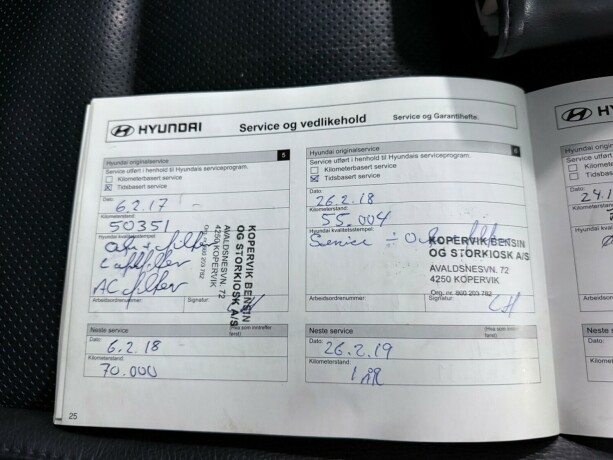 HYUNDAI
Service og vedlikehold
Service og Garantihefte.
Hyundai originalservice 5
Service utført i henhold til Hyundais serviceprogram.
Kilometerbasert service
Tidsbasert service
Dato:
6.2.17 -
Kilometerstand:
50351
Hyundai kvalitetsstempel:
Olje + filter
Luftfilter
AC filter
KOPERVIK BENSIN
OG STORKIOSK A/S
AVALDSNESVN. 72
4250 KOPERVIK
Org. nr. 800 203 782
Arbeidsordrenummer:
Signatur:
Neste service
(Hva som inntreffer
først)
Dato:
6.2.18 -
Kilometerstand:
70.000
25
Hyundai originalservice 6
Service utført i henhold til Hyundais serviceprogram.
Kilometerbasert service
Tidsbasert service
Dato:
26.2.18
Kilometerstand:
55.004
Hyundai kvalitetsstempel:
Service ÷ Olje filter
KOPERVIK BENSIN
OG STORKIOSK A/S
AVALDSNESVN. 72
4250 KOPERVIK
Org. nr. 800 203 782
Arbeidsordrenummer:
Signatur:
Neste service
(Hva som inntreffer
først)
Dato:
26.2.19
Kilometerstand:
1 ÅR
Dato: